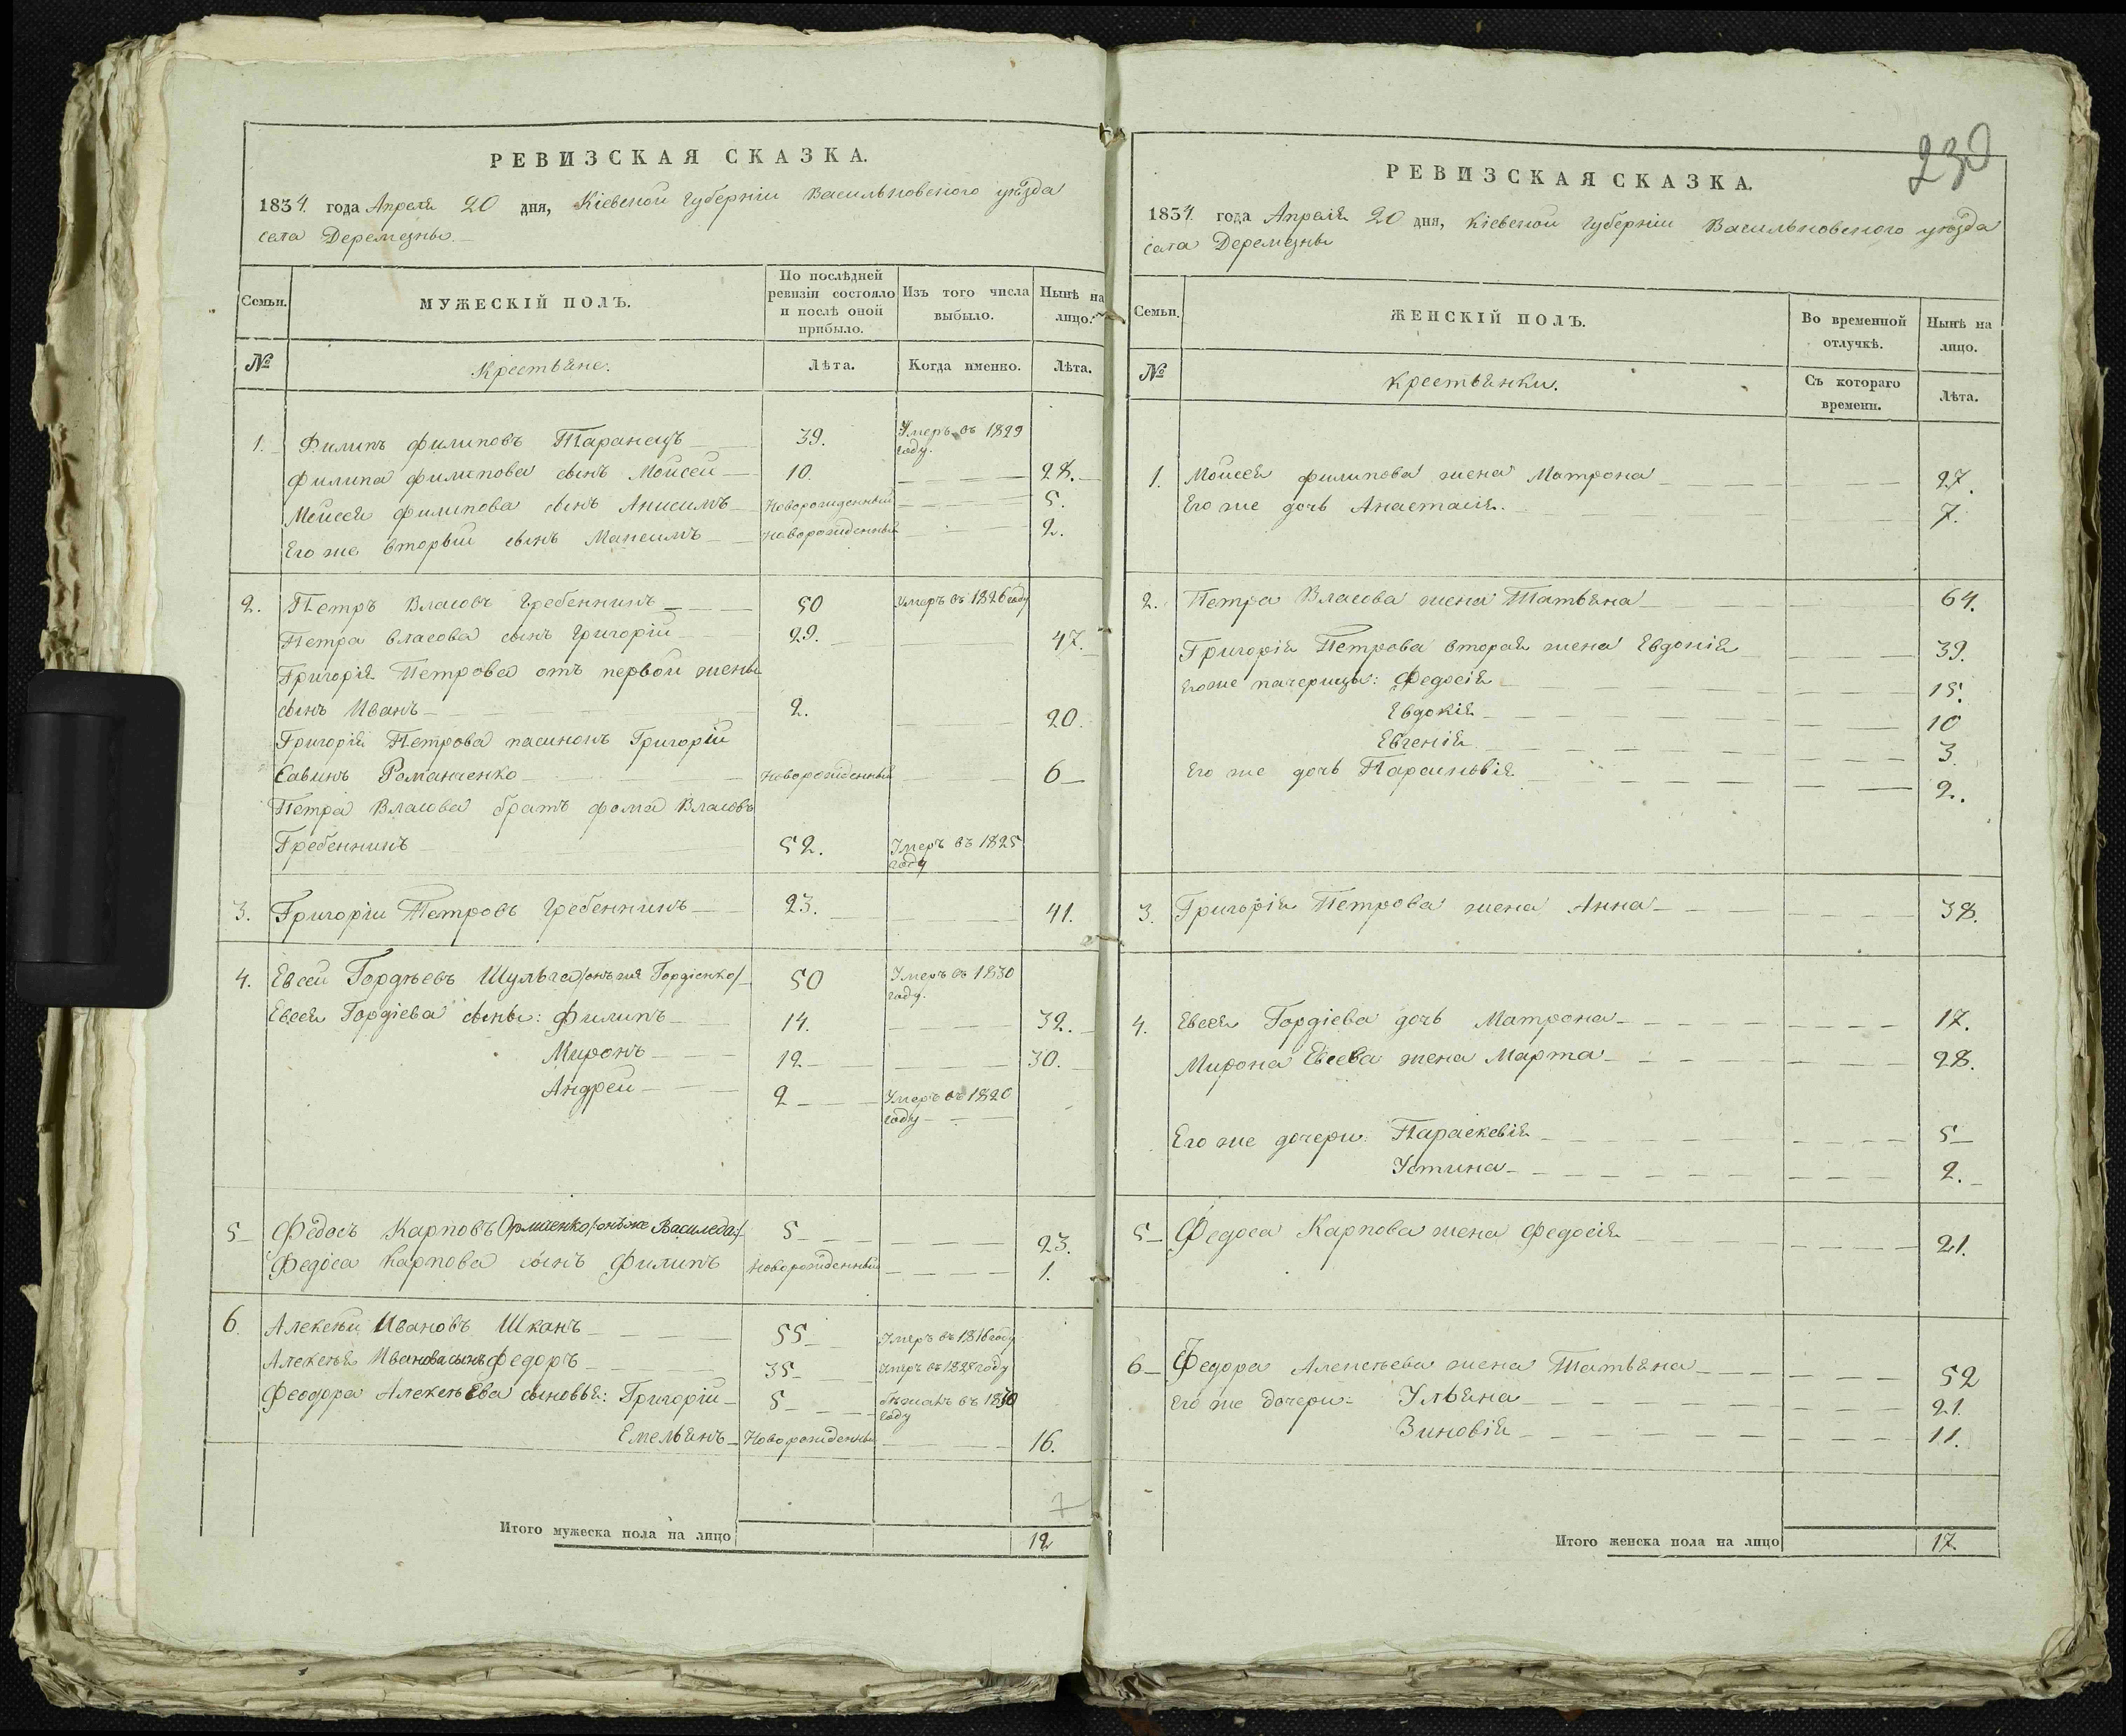 РЕВИЗСКАЯ СКАЗКА.
1834. года Апреля 20 дня, Кіевской Губерніи Васильковского уѣзда
села Деремезны.
Семьи.
МУЖЕСКІЙ ПОЛЪ.
По послѣдней ревизіи состояло и послѣ оной прибыло.
Изъ того числа выбыло.
Нынѣ на лицо.
№
Крестьяне.
Лѣта.
Когда именно.
Лѣта.
1. Филипъ филиповъ Таранецъ 39. Умеръ въ 1829 году.
Филипа филипова сынъ Моисей 10. 28.
Моисея филипова сынъ Анисимъ Новорожденный 5.
Его же вторый сынъ Максимъ Новорожденный 2.
2. Петръ Власовъ Гребенникъ 50 Умеръ въ 1826 году
Петра власова сынъ Григорій 29. 47.
Григорія Петрова отъ первой жены
сынъ Иванъ 2. 20.
Григорія Петрова пасинокъ Григорій
Савинъ Романченко Новорожденный 6
Петра Власова братъ фома Власовъ
Гребенникъ 52. Умеръ въ 1825 году
3. Григорій Петровъ Гребенникъ 23. 41.
4. Евсей Гордѣевъ Шульга /онъ же Гордіенко/ 50 Умеръ въ 1830 году.
Евсея Гордіева сыны: Филипъ 14. 32.
Миронъ 12 30.
Андрей 2 Умеръ въ 1820 году
5 Федосъ Карповъ /:онъ же 5 23.
Федоса Карпова сынъ Филипъ Новорожденный 1.
6. Алексѣй Ивановъ Шканъ 55 Умеръ въ 1816 году
Алексѣя Иванова сынъ Федоръ 35 Умеръ въ 1828 году
Феодора Алексѣева сыновья: Григорій 5 бѣжалъ въ 1830 году
Емельянъ Новорожденный 16.
7
Итого мужеска пола на лицо 12
230
РЕВИЗСКАЯ СКАЗКА.
1834. года Апреля 20 дня, Кіевской Губерніи Васильковского уѣзда
села Деремезны
Семьи.
ЖЕНСКІЙ ПОЛЪ.
Во временной отлучкѣ.
Нынѣ на лицо.
№
Крестьянки.
Съ котораго времени.
Лѣта.
1. Моисея филипова жена Матрона 27.
Его же дочь Анастасія. 7.
2. Петра Власова жена Татьяна 64.
Григорія Петрова вторая жена Евдокія 39.
Его же пачерицы: Федосія 15.
Евдокія 10
Евгенія 3.
Его же дочь Парасковія 2.
3. Григорія Петрова жена Анна 38.
4. Евсея Гордіева дочь Матрона 17.
Мирона Евсева жена Марта 28.
Его же дочери: Параскевія 5
Устина 2.
5 Федоса Карпова жена Федосія 21.
6 Федора Алексѣева жена Татьяна 52
Его же дочери: Ульяна 21.
Зиновія 11.
Итого женска пола на лицо 17.